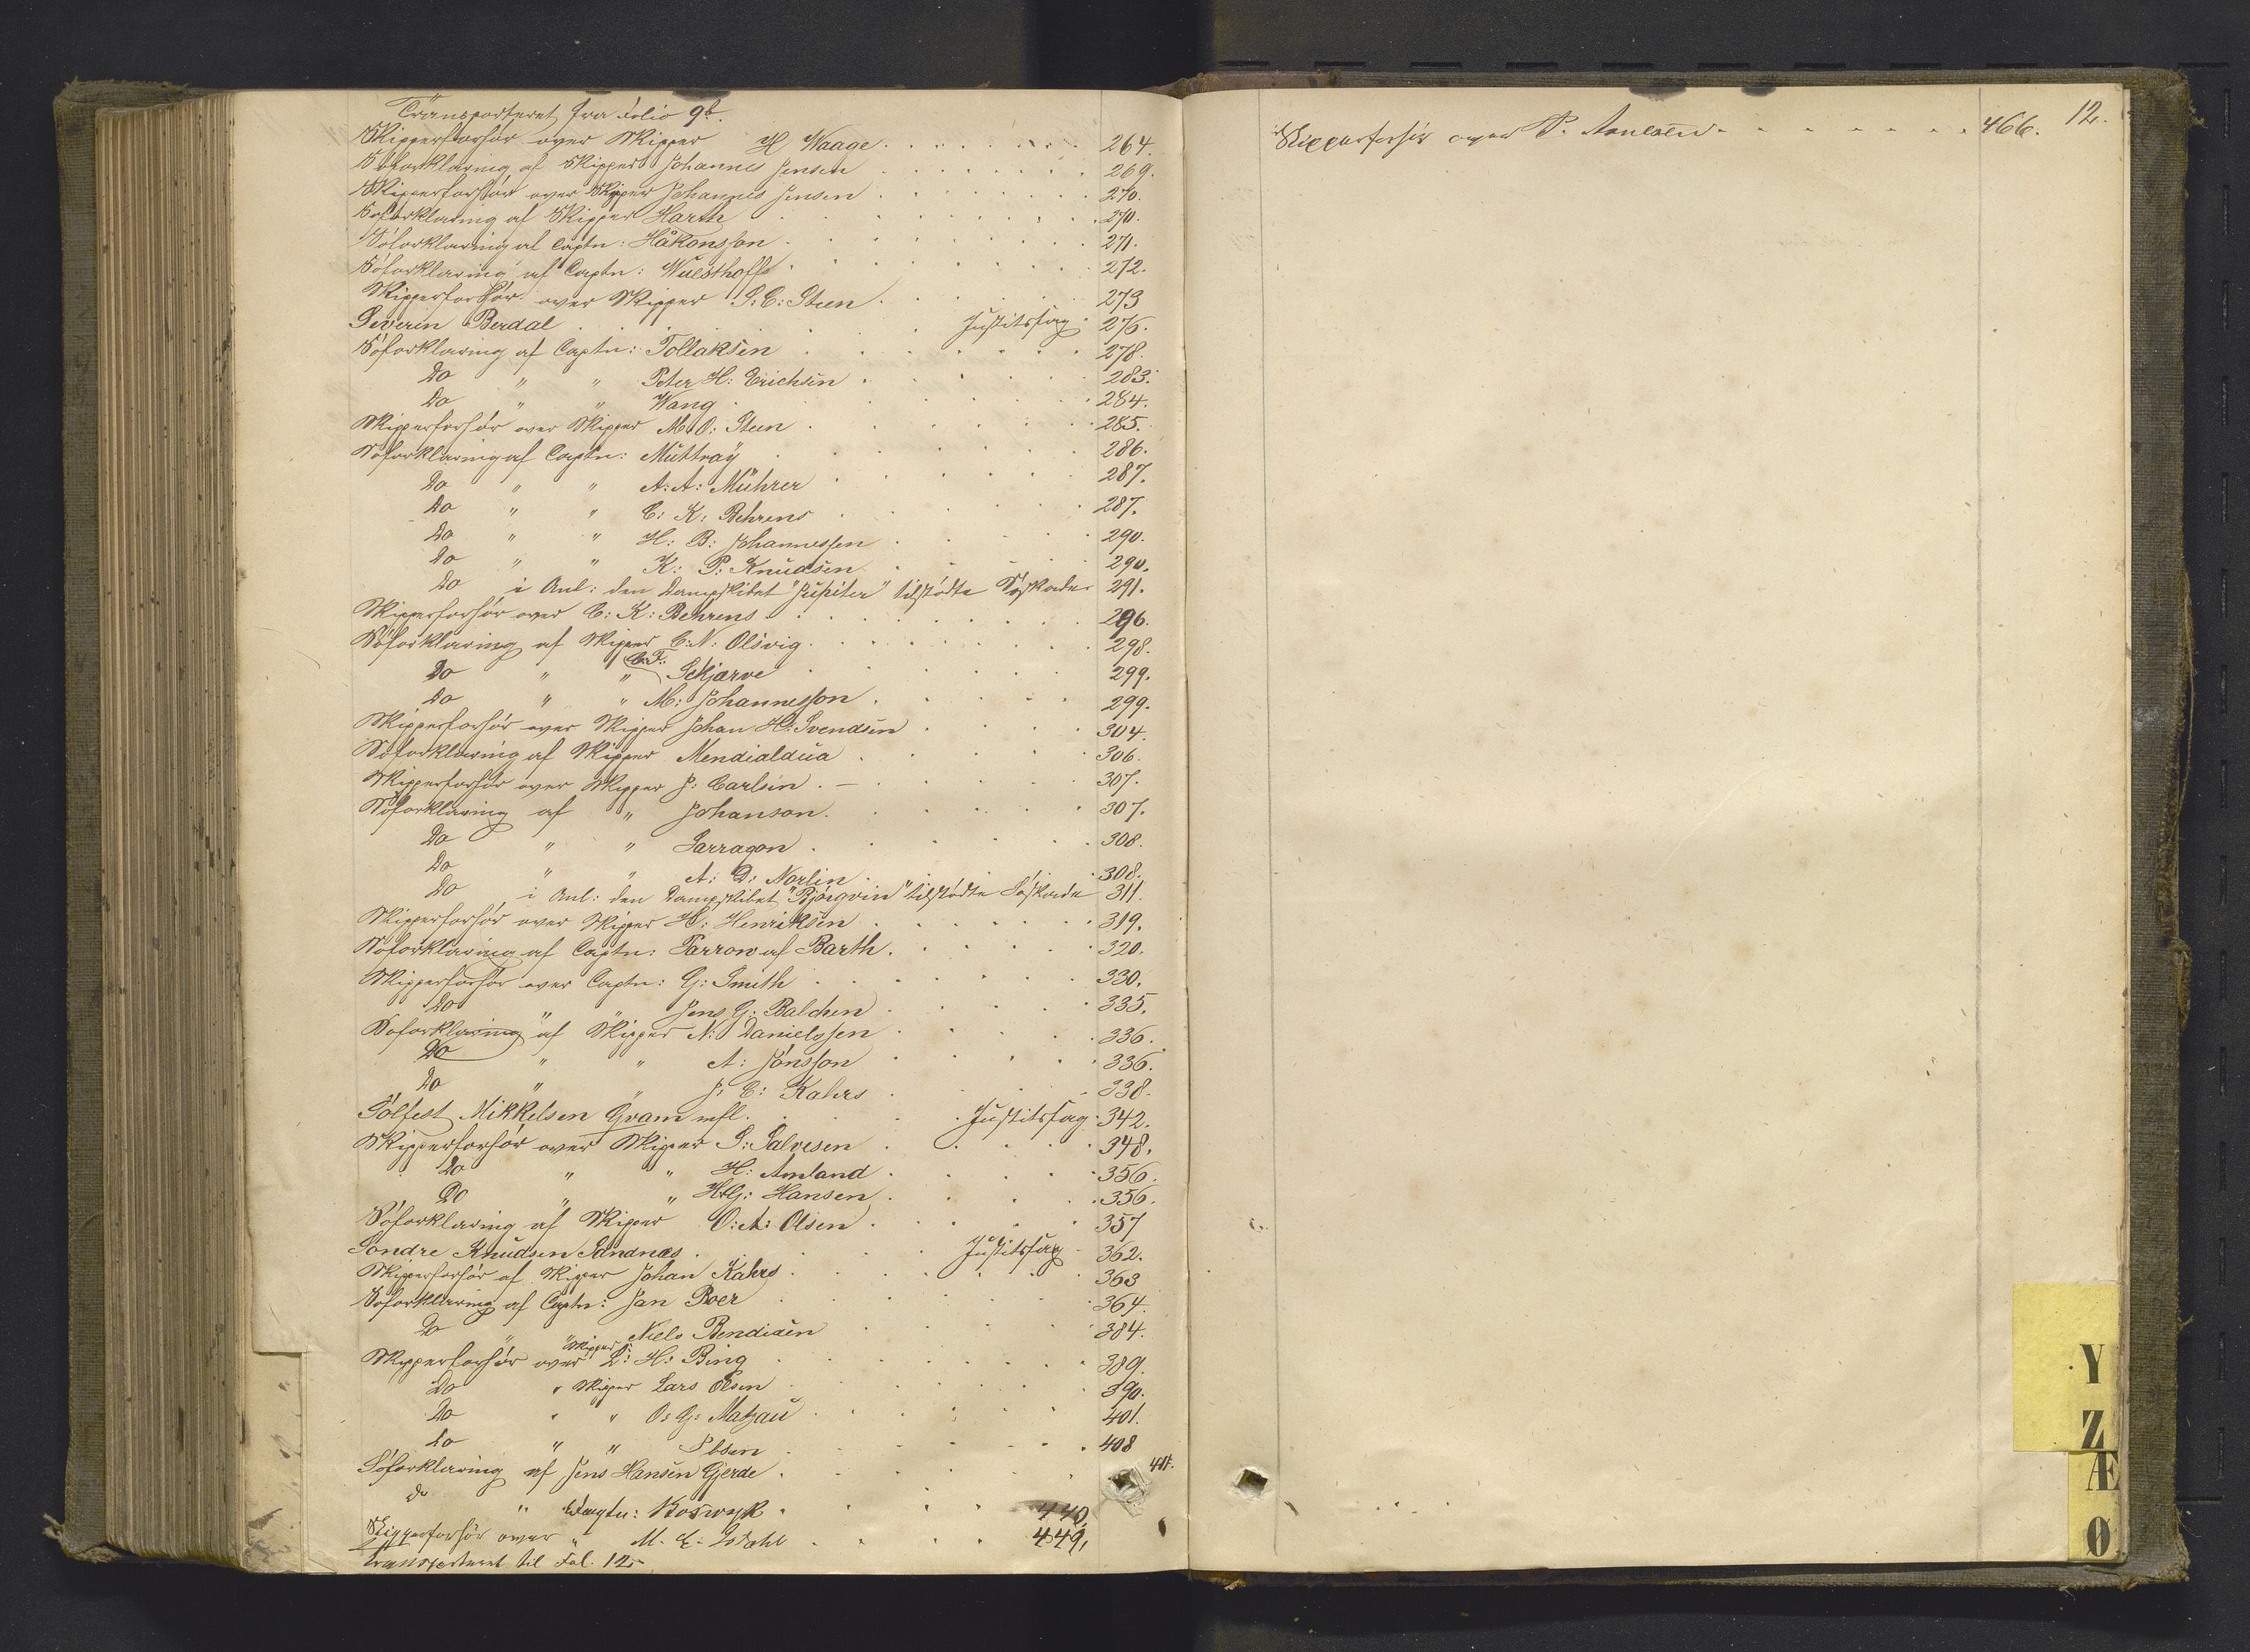 Transporteret fra Folio 9b.
Skipperforhør over Skipper H Waage 264.
Søforklaring af Skipper Johannes Jensen 269.
Skipperforhør over Skipper Johannes Jensen 270.
Søforklaring af Skipper Harth 270.
Søforklaring af Captn: Håkonsson 271.
Søforklaring af Captn: Wuesthoff 272.
Skipperforhør over Skipper P: C: Steen 273
Severin Berdal Justitssag 276.
Søforklaring af Captn: Tollaksen 278.
Do " " Peter H: Erichsen 283.
Do " " Wang 284.
Skipperforhør over Skipper M: O: Steen 285.
Søforklaring af Captn: Muttray 286.
Do " " A: A: Mührer 287.
Do " " C: K: Behrens 287.
Do " " H: B: Johannessen 290.
Do " " K: P: Knudsen 290.
Do i Anl: den Dampskibet "Jupiter" tilstødte Søskade 291.
Skipperforhør over C: K: Behrens 296.
Søforklaring af Skipper C: N: Olsvig 298.
Do " " C: F: Schjarve 299.
Do " " M: Johannesson 299.
Skipperforhør over Skipper Johan H: Svendsen 304.
Søforklaring af Skipper Mendialdua 306.
Skipperforhør over Skipper J: Carlsen 307.
Søforklaring af " Johanson 307.
Do " " Sarragon 308.
Do " " A: D: Norlin 308.
Do i Anl: den Dampskibet "Bjørgvin" tilstødte Søskade 311.
Skipperforhør over Skipper H: Henriksen 319.
Søforklaring af Captn: Parrow af Barth 320.
Skipperforhør over Captn: G: Smith 330.
Do " " Jens G: Balchen 335.
Søforklaring af Skipper N: Danielssen 336.
Do " " A: Jónsson 336.
Do " " J: C: Kahrs 338.
Sølfest Mikkelsen Gram mfl. Justitssag 342.
Skipperforhør over Skipper S: Salvesen 348.
Do " " H: Amland 356.
Do " " H: G: Hansen 356.
Søforklaring af Skipper O: A: Olsen 357
Søndre Knudsen Sandnæs Justitssag 362.
Skipperforhør af Skipper Johan Kahrs 363
Søforklaring af Captn: Jan Boer 364.
Do " Skipper Niels Bendixen 384.
Skipperforhør over L: H: Bing 389.
Do " Skipper Lars Olsen 390.
Do " " O: G: Matzau 401.
Do " " Ibsen 408
Søforklaring af Jens Hansen Gjerde 411.
do " Captn: Koswyk 440.
Skipperforhør over " M. E. 449.
Transporteret til Fol. 12.
12.
Skipperforhør over P. 466.
Y
Z
Æ
Ø